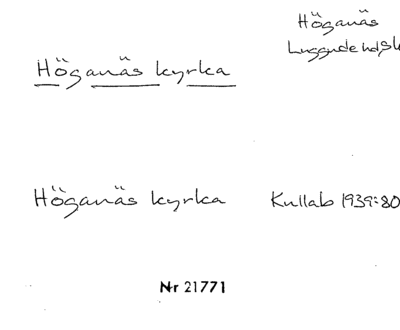 Höganäs
Höganäs kyrka
Höganäs kyrka Kullab 1939:80
Nr 21771